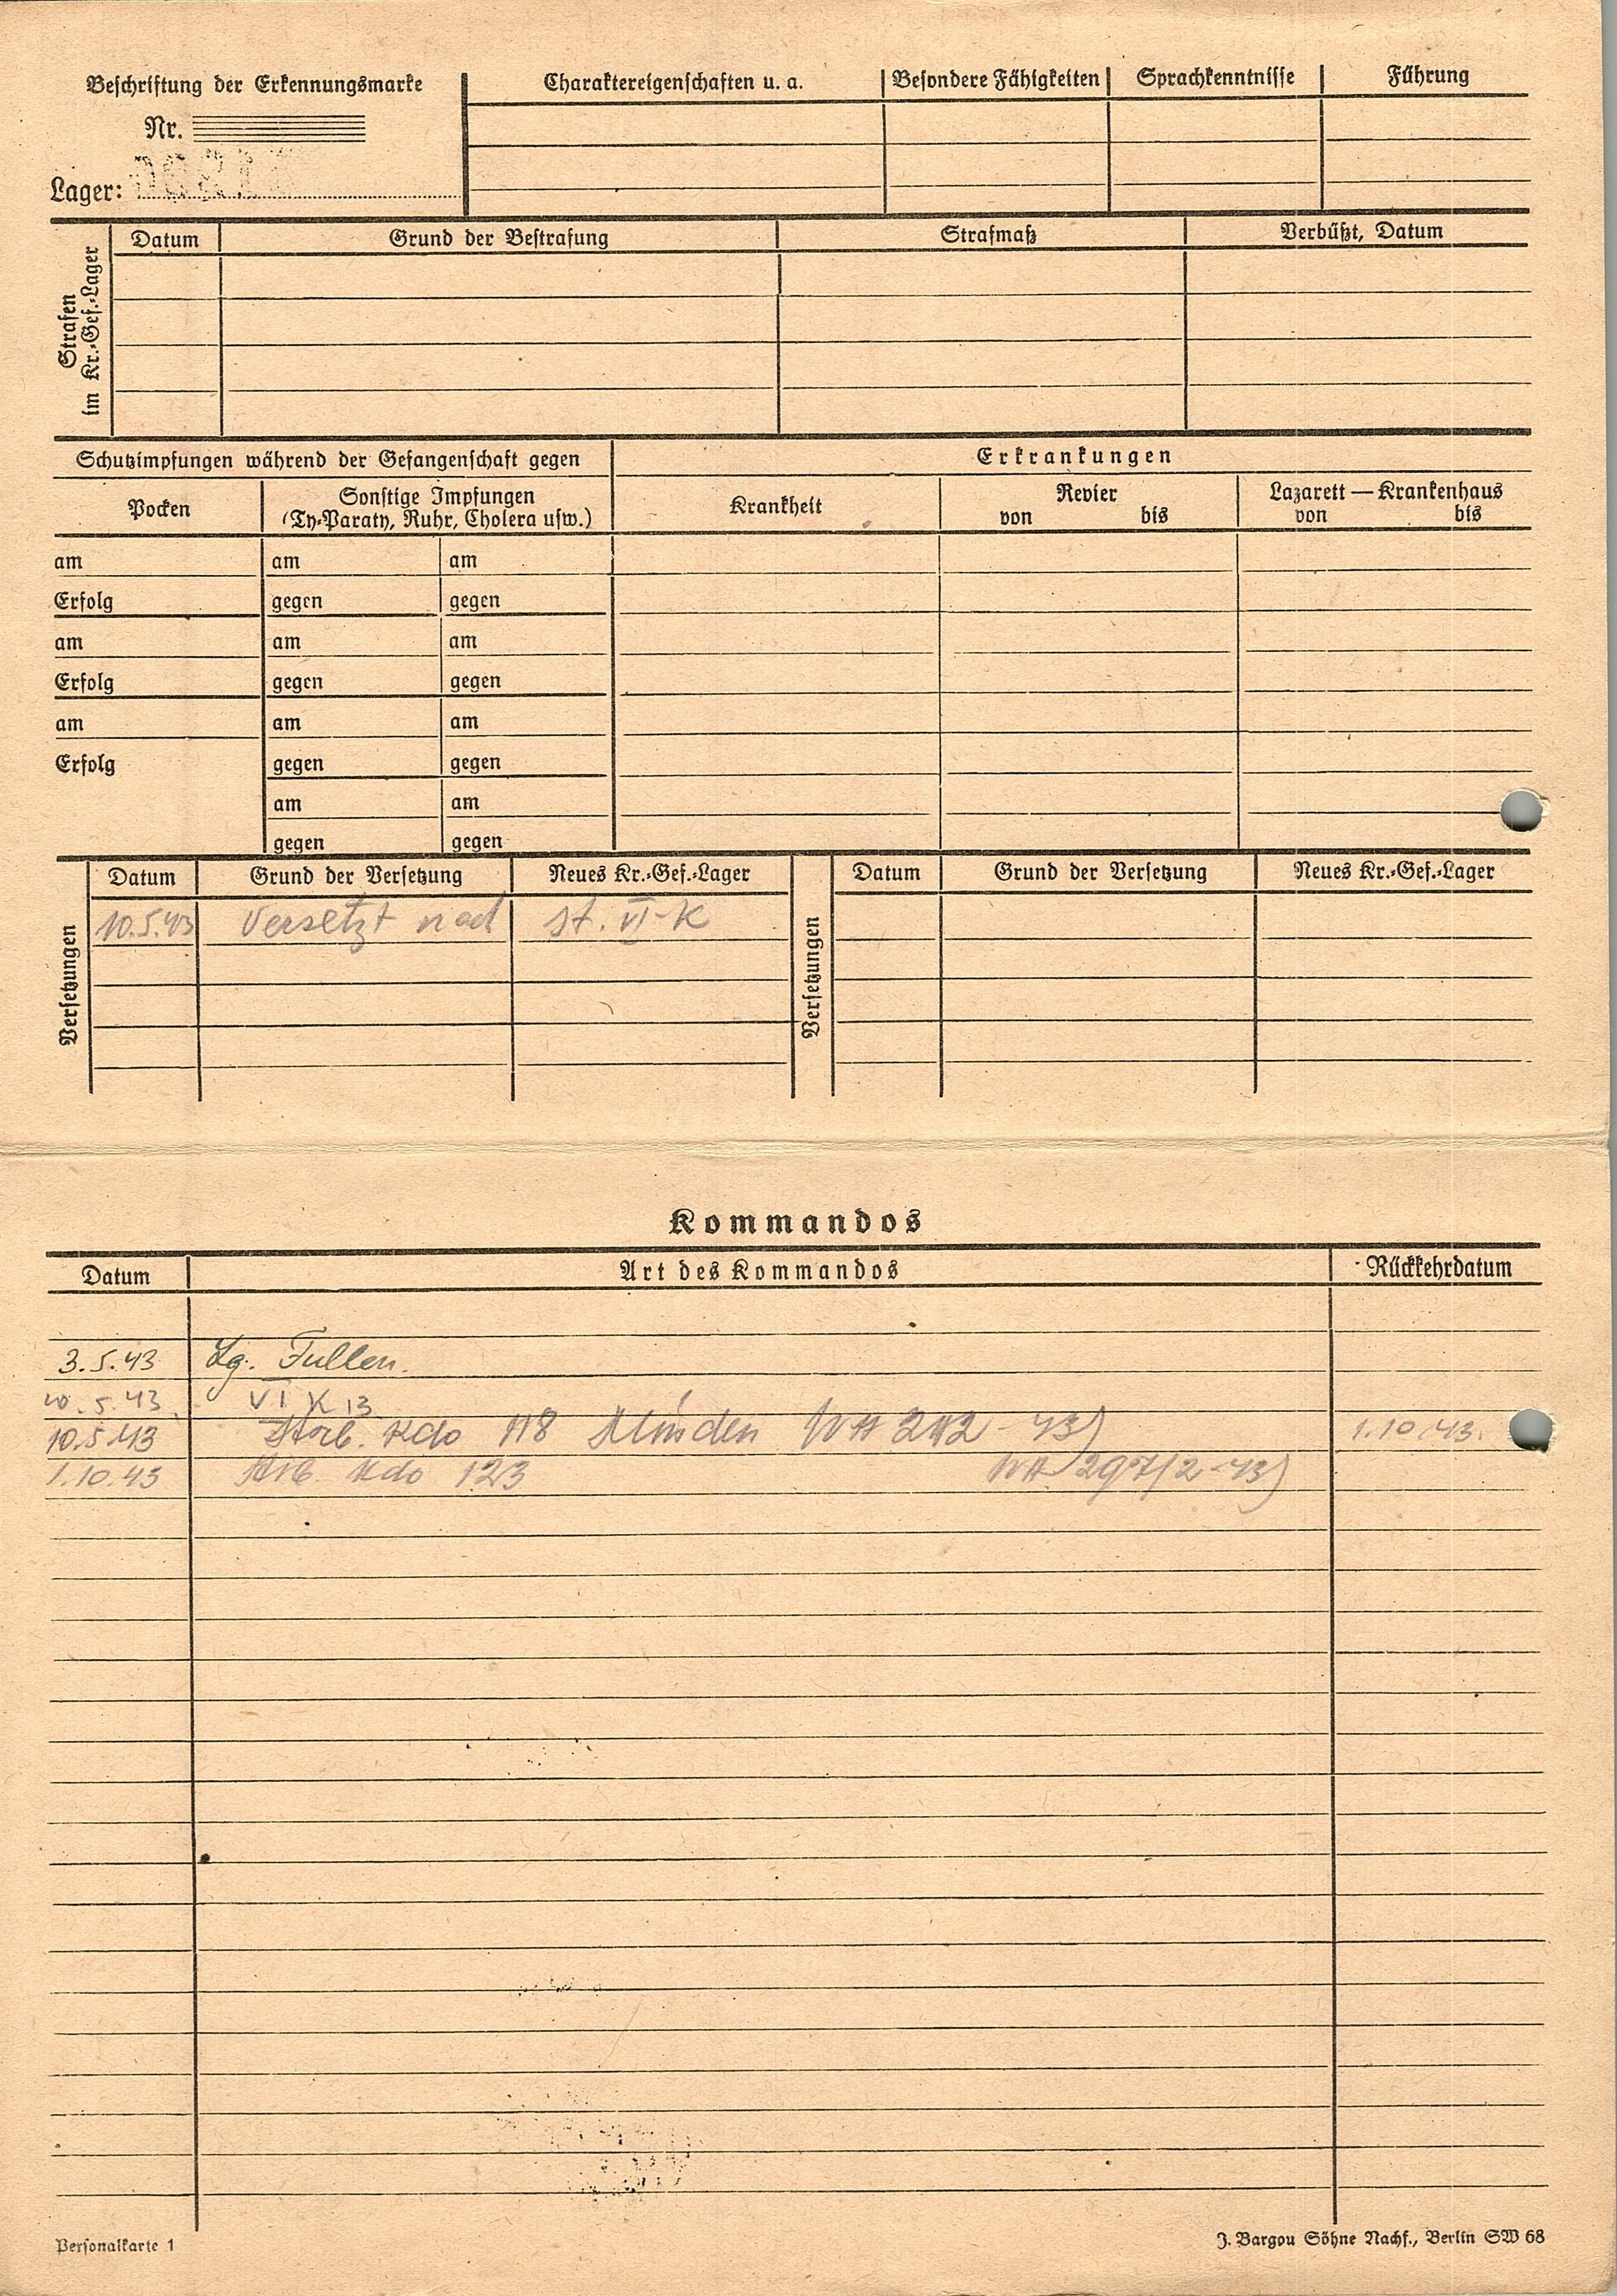 Beschriftung der Erkennungsmarke
Nr.
Lager:
Charaktereigenschaften u. a.
Besondere Fähigkeiten
Sprachkenntnisse
Führung
Strafen
im Kr.-Gef.-Lager
Datum
Grund der Bestrafung
Strafmaß
Verbüßt, Datum
Schutzimpfungen während der Gefangenschaft gegen
Erkrankungen
Pocken
Sonstige Impfungen
(Ty-Paraty, Ruhr, Cholera usw.)
Krankheit
Revier
von bis
Lazarett — Krankenhaus
von bis
am am am
Erfolg gegen gegen
am am am
Erfolg gegen gegen
am am am
Erfolg gegen gegen
am am
gegen gegen
Versetzungen
Datum Grund der Versetzung Neues Kr.-Gef.-Lager
10.5.43 Versetzt nach St. VI-K
Versetzungen
Datum Grund der Versetzung Neues Kr.-Gef.-Lager
Kommandos
Datum Art des Kommandos Rückkehrdatum
3.5.43 Lg. Fullen.
10.5.43 VI K 13
10.5.43 Arb. Kdo 118 Minden 1.10.43.
1.10.43 Arb. Kdo 123
Personalkarte 1
J. Bargou Söhne Nachf., Berlin SW 68